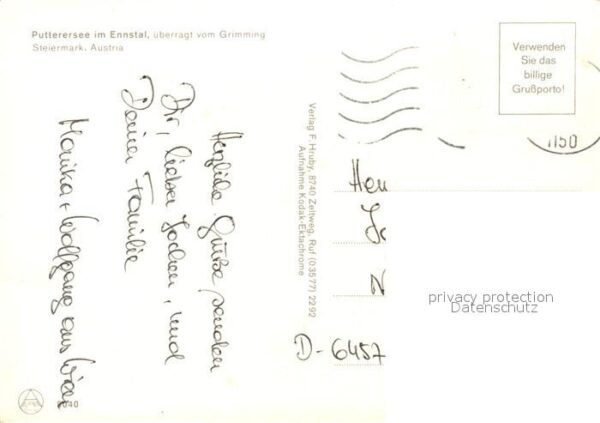 Putterersee im Ennstal, überragt vom Grimming
Steiermark, Austria
Verwenden
Sie das
billige
Grußporto!
1150
Herzliche Grüße senden
Dir, lieber Jochen, und
Deiner Familie
Monika + Wolfgang aus Wien
Verlag F. Hruby, 8740 Zeltweg, Ruf (03577) 2292
Aufnahme Kodak-Ektachrome
D-6457
privacy protection
Datenschutz